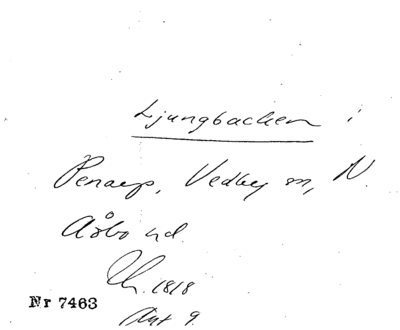 Ljungbacken i
Penarp, Vedby sn, N.
Åsbo hd.
1818
Akt 9.
Nr 7463